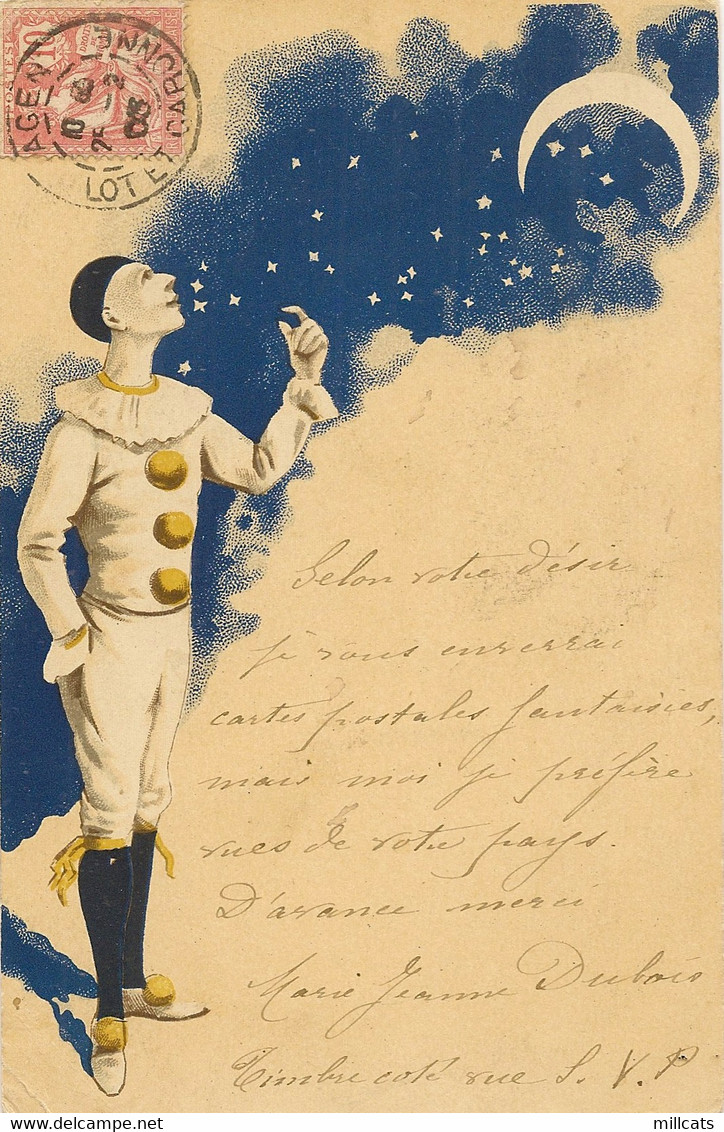 10
POSTES
AGEN
LOT ET GARONNE
Selon votre désir
je vous enverrai
cartes postales fantaisies,
mais moi je préfère
vues de votre pays.
D'avance merci
Marie Jeanne Dubois
Timbre coté vue S. V. P
millcats